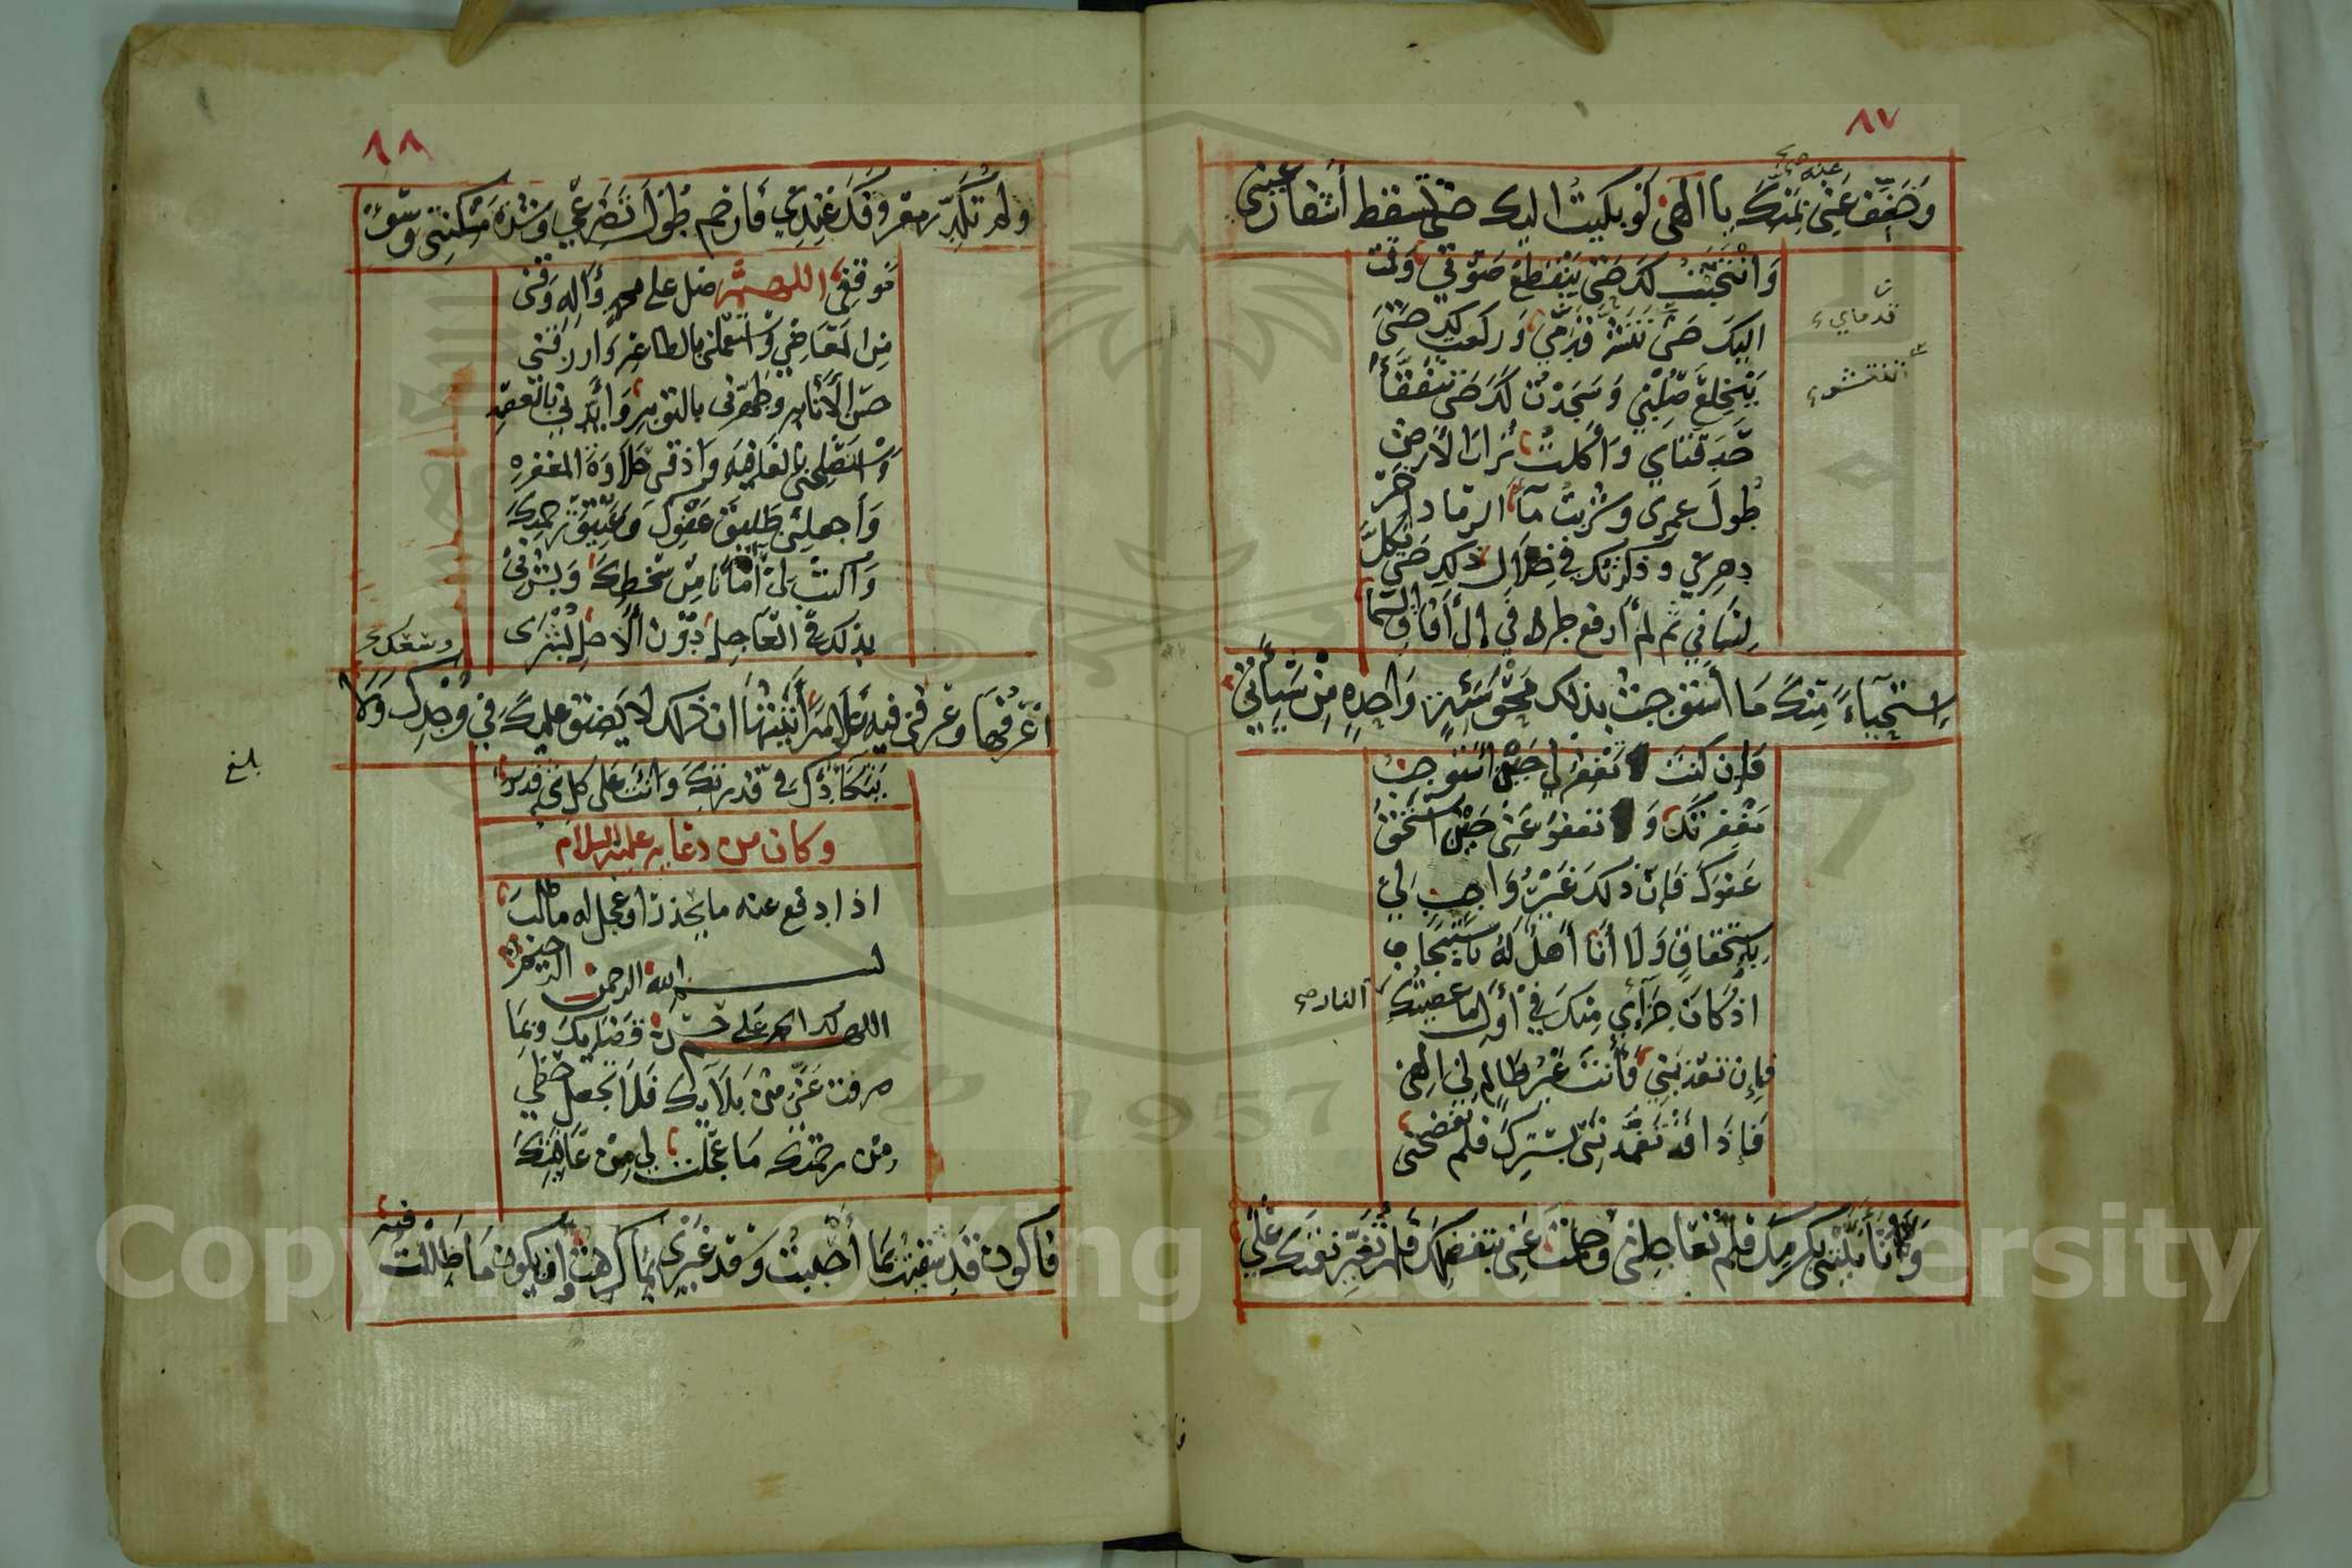 ٨٧
عنه صح
وَخَفِّف عَنِّي بِمَنِّكَ يا الهي لَو بكيتُ اليك حتى تسقط أشفار عيني
وَانْتَحَبْتُ لكَ حتى يَنْقَطِعَ صَوْتي وَقمت
اليكَ حتى تتنشر قدمي وَركعت لك حَتّى
يَنْخَلِعَ صُلْبي وَسَجَدْتُ لكَ حَتى تتفَقَّأَ
حَدَقتاي وَأكلتُ تُرابَ الأرض
طُولَ عمري وشربتُ مآءَ الرماد اخر
دهري وذكرتك في خِلال ذلك حتى يَكِلَّ
لِسَاني ثم لم أرفع طرفي إلى آفاق السما
اِستحياءً مِنكَ ما استوجبتُ بذلك مَحْوَ سَيِّئةٍ وَاحِدةٍ مِنْ سَيِّآتي
قدماي
تنتشر
فَإن كنتَ تغفر لي حِيْنَ استوجبُ
مَغفِرتكَ وَ تعفوُ عَنّي حِيْنَ استحقّ
عَفوكَ فَإنّ ذلكَ غَيْرُ وَاجِبٍ لي
بِاستحقاقٍ وَلا أنا أهلٌ لهُ باستيجاب
اذ كانَ جَزآئي مِنكَ في أوّل ما عصيتكَ
النار صح
فإن تعذبني فأنتَ غيْرُ ظالِمٍ لي الهي
فَإذا قد تَغَمَّدتَني بِسَتركَ فلم تفضحني
وَتأنَّيْتَني بكرمِكَ فلم تُعَاجِلني وحلمتَ عَنّي بتفضلكَ فلم تُغَيّر نعمَتكَ عَليَّ
٨٨
ولم تكَدِّر معروفكَ عِندي فارحم طُولَ تضرعي وشدة مسكنتي وسوء
موقفي اللهم صل على محمد وآلهِ وَقني
من المعاصي وَاستعملني بالطاعة وارزقني
حسن الانابة وطهّرني بالتوبة وَأيّدني بالعصمة
واستصلحني بالعافية واذقني حلاوَة المغفرة
وَاجعلني طليقَ عفوكَ وَعتيقَ رحمتكَ
وَاكتبْ لي أمَانا مِنْ سَخطكَ وَبشرني
بذلكَ في العاجل دُوْن الآجل بُشْرى
اَعْرفُها وعرفني فيه علامةً أتبيَّنها ان ذلك لا يضيق عليكَ في وُجدك وَلا
وسعك
يَتَكَأَّدُكَ في قدرتكَ وَانتَ على كل شئ قدير
بلغ
وكان من دعايه عليه السلام
اذا دفع عنه ما يحذر او عجل له مطلبه
بسم الله الرحمن الرحيم
اللهم لك الحمد على حسن قضايك وبما
صرفت عَنّي من بَلآئك فلا تجعل حظي
من رحمتك ما عجّلت لي مِن عَافيتكَ
فاكون قد شقيتُ بما أحببتُ وَقد غيري بما كرهتُ وان يكون ما ظللت
فيه